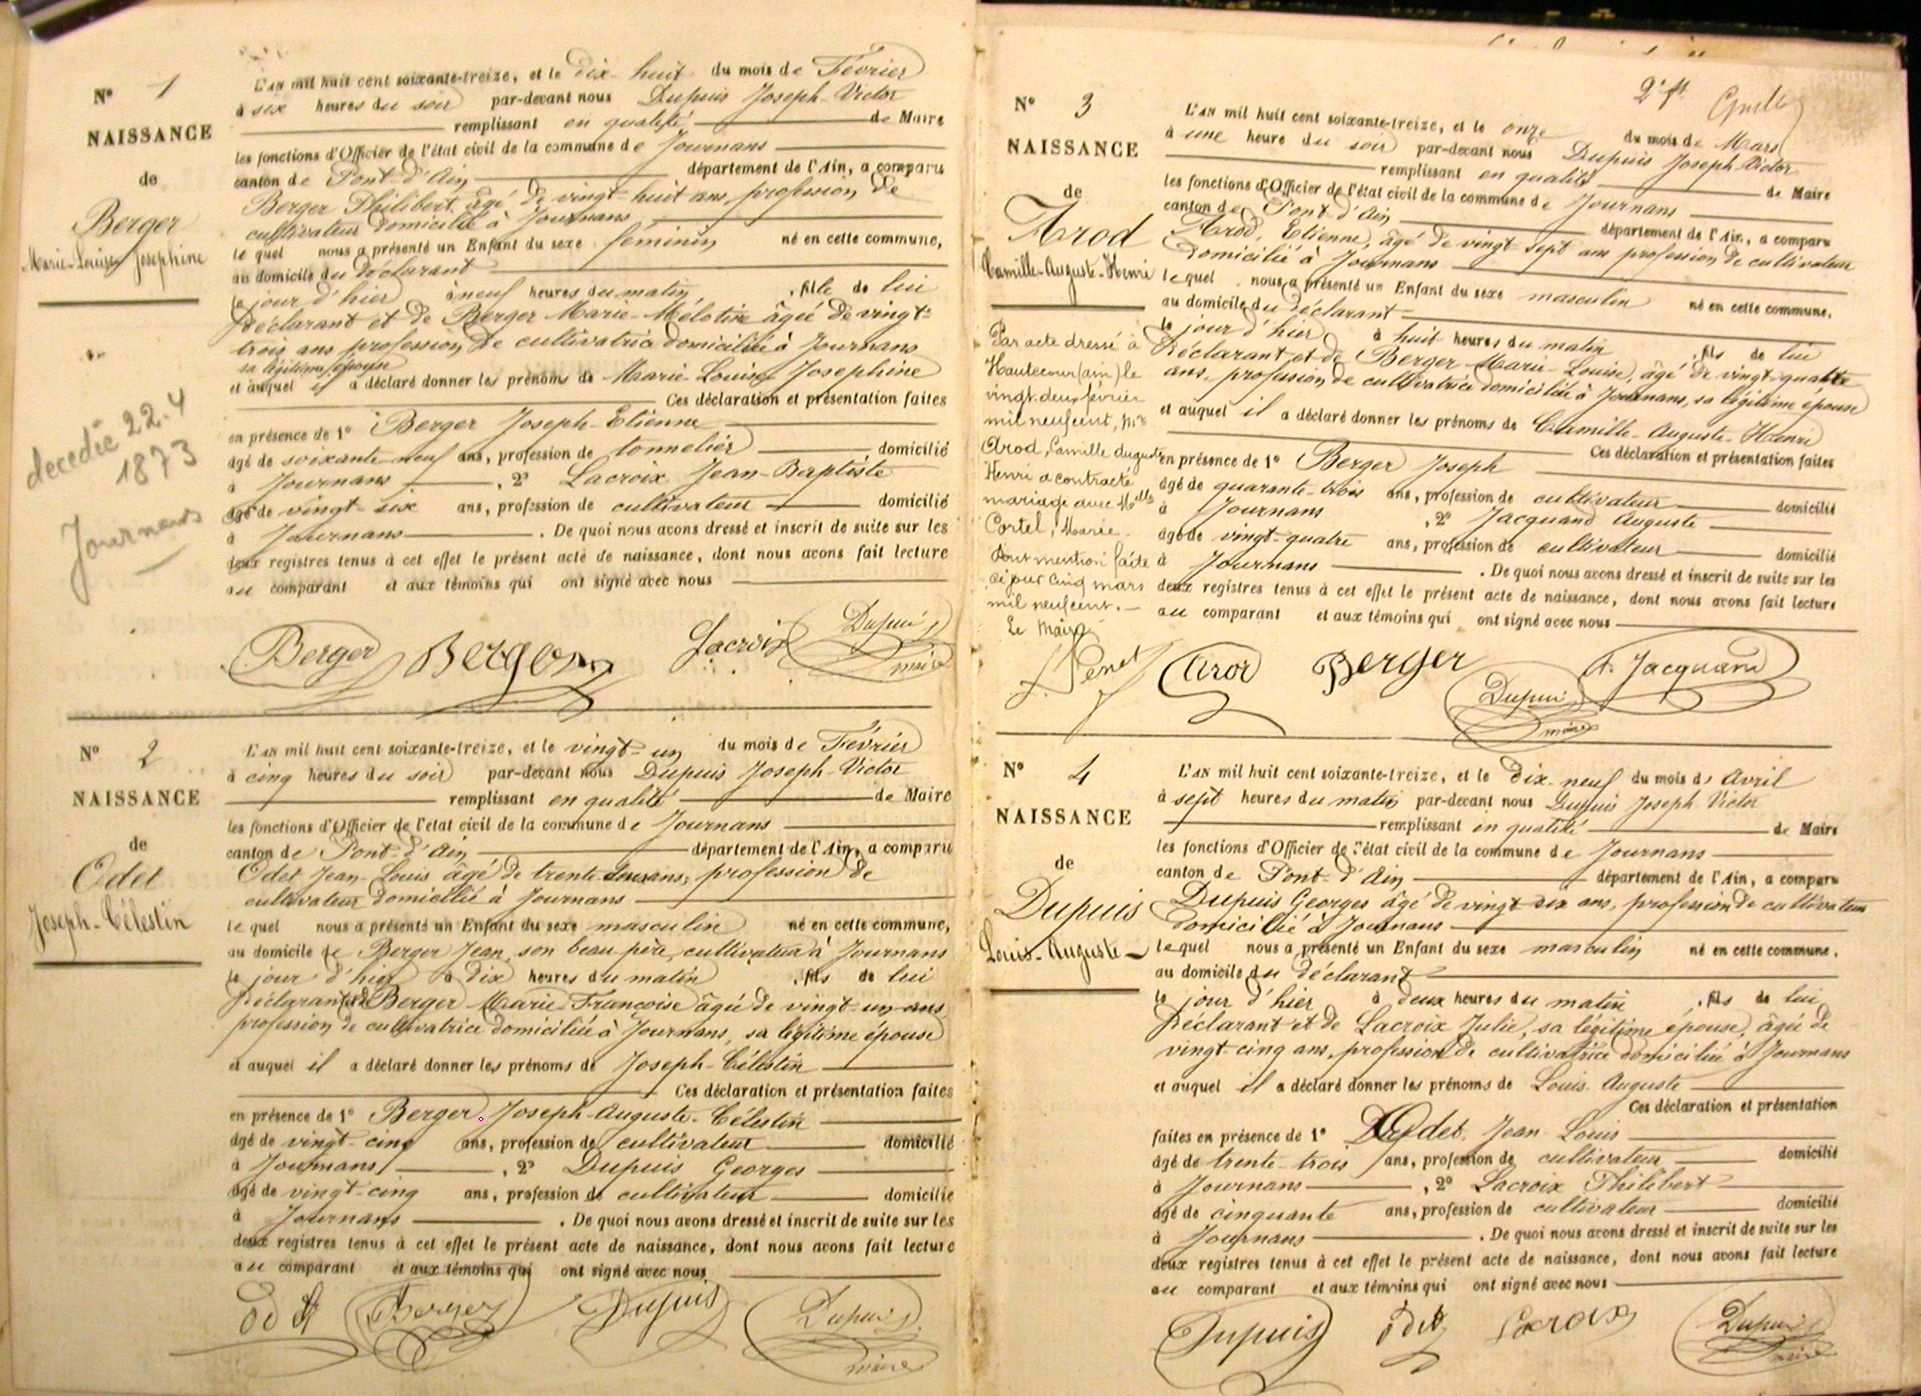 N° 1
NAISSANCE
de
Berger
Marie-Louise Josephine
decedée 22.4
1873
Journans
L'AN mil huit cent soixante-treize, et le dix-huit du mois de Février
à six heures du soir par-devant nous Dupuis Joseph-Victor
remplissant en qualité de Maire
les fonctions d'Officier de l'état civil de la commune de Journans
canton de Pont-d'Ain département de l'Ain, a comparu
Berger Philibert, âgé de vingt-huit ans, profession de
cultivateur domicilié à Journans
le quel nous a présenté un Enfant du sexe féminin né en cette commune,
au domicile du déclarant
le jour d'hier à neuf heures du matin , fille de lui
déclarant et de Berger Marie-Mélotine âgée de vingt-
trois ans profession de cultivatrice domiciliée à Journans
sa légitime épouse
et auquel il a déclaré donner les prénoms de Marie Louise Josephine
Ces déclaration et présentation faites
en présence de 1° Berger Joseph-Etienne
âgé de soixante-neuf ans, profession de tonnelier domicilié
à Journans , 2° Lacroix Jean-Baptiste
âgé de vingt-six ans, profession de cultivateur domicilié
à Journans . De quoi nous avons dressé et inscrit de suite sur les
deux registres tenus à cet effet le présent acte de naissance, dont nous avons fait lecture
au comparant et aux témoins qui ont signé avec nous
Berger Berger Lacroix Dupuis
maire
N° 2
NAISSANCE
de
Odet
Joseph-Célestin
L'AN mil huit cent soixante-treize, et le vingt-un du mois de Février
à cinq heures du soir par-devant nous Dupuis Joseph-Victor
remplissant en qualité de Maire
les fonctions d'Officier de l'état civil de la commune de Journans
canton de Pont-d'Ain département de l'Ain, a comparu
Odet Jean-Louis âgé de trente ans, profession de
cultivateur domicilié à Journans
le quel nous a présenté un Enfant du sexe masculin né en cette commune,
au domicile de Berger Jean, son beau père, cultivateur à Journans
le jour d'hier à dix heures du matin , fils de lui
déclarant et de Berger Marie Françoise âgée de vingt-un ans
profession de cultivatrice domiciliée à Journans, sa légitime épouse
et auquel il a déclaré donner les prénoms de Joseph-Célestin
Ces déclaration et présentation faites
en présence de 1° Berger Joseph-Auguste-Célestin
âgé de vingt-cinq ans, profession de cultivateur domicilié
à Journans , 2° Dupuis Georges
âgé de vingt-cinq ans, profession de cultivateur domicilié
à Journans . De quoi nous avons dressé et inscrit de suite sur les
deux registres tenus à cet effet le présent acte de naissance, dont nous avons fait lecture
au comparant et aux témoins qui ont signé avec nous
odet Berger Dupuis Dupuis
maire
N° 3
NAISSANCE
de
Arod
Camille-Auguste-Henri
Par acte dressé à
Hautecour (ain) le
vingt-deux février
mil neuf cent, Mr
Arod, Camille Auguste
Henri a contracté
mariage avec Melle
Cortel, Marie.
Dont mention faite
ce jour cinq mars
mil neuf cent.
Le Maire
2e ft
L'AN mil huit cent soixante-treize, et le onze du mois de Mars
à une heure du soir par-devant nous Dupuis Joseph-Victor
remplissant en qualité de Maire
les fonctions d'Officier de l'état civil de la commune de Journans
canton de Pont-d'Ain département de l'Ain, a comparu
Arod, Etienne, âgé de vingt-sept ans profession de cultivateur
domicilié à Journans
le quel nous a présenté un Enfant du sexe masculin né en cette commune,
au domicile du déclarant
le jour d'hier à huit heures du matin , fils de lui
déclarant et de Berger Marie-Louise, âgé de vingt-quatre
ans, profession de cultivatrice domiciliée à Journans, sa légitime épouse
et auquel il a déclaré donner les prénoms de Camille-Auguste-Henri
Ces déclaration et présentation faites
en présence de 1° Berger Joseph
âgé de quarante-trois ans, profession de cultivateur domicilié
à Journans , 2° Jacquand Auguste
âgé de vingt-quatre ans, profession de cultivateur domicilié
à Journans . De quoi nous avons dressé et inscrit de suite sur les
deux registres tenus à cet effet le présent acte de naissance, dont nous avons fait lecture
au comparant et aux témoins qui ont signé avec nous
J. Penet Arod Berger Dupuis A. Jacquand
maire
N° 4
NAISSANCE
de
Dupuis
Louis-Auguste
L'AN mil huit cent soixante-treize, et le dix-neuf du mois d'Avril
à sept heures du matin par-devant nous Dupuis Joseph Victor
remplissant en qualité de Maire
les fonctions d'Officier de l'état civil de la commune de Journans
canton de Pont-d'Ain département de l'Ain, a comparu
Dupuis Georges âgé de vingt-six ans, profession de cultivateur
domicilié à Journans
le quel nous a présenté un Enfant du sexe masculin né en cette commune,
au domicile du déclarant
le jour d'hier à deux heures du matin , fils de lui
déclarant et de Lacroix Julie, sa légitime épouse, âgée de
vingt-cinq ans, profession de cultivatrice domiciliée à Journans
et auquel il a déclaré donner les prénoms de Louis Auguste
Ces déclaration et présentation
faites en présence de 1° Odet, Jean Louis
âgé de trente-trois ans, profession de cultivateur domicilié
à Journans , 2° Lacroix Philibert
âgé de cinquante ans, profession de cultivateur domicilié
à Journans . De quoi nous avons dressé et inscrit de suite sur les
deux registres tenus à cet effet le présent acte de naissance, dont nous avons fait lecture
au comparant et aux témoins qui ont signé avec nous
Dupuis odet Lacroix Dupuis
maire